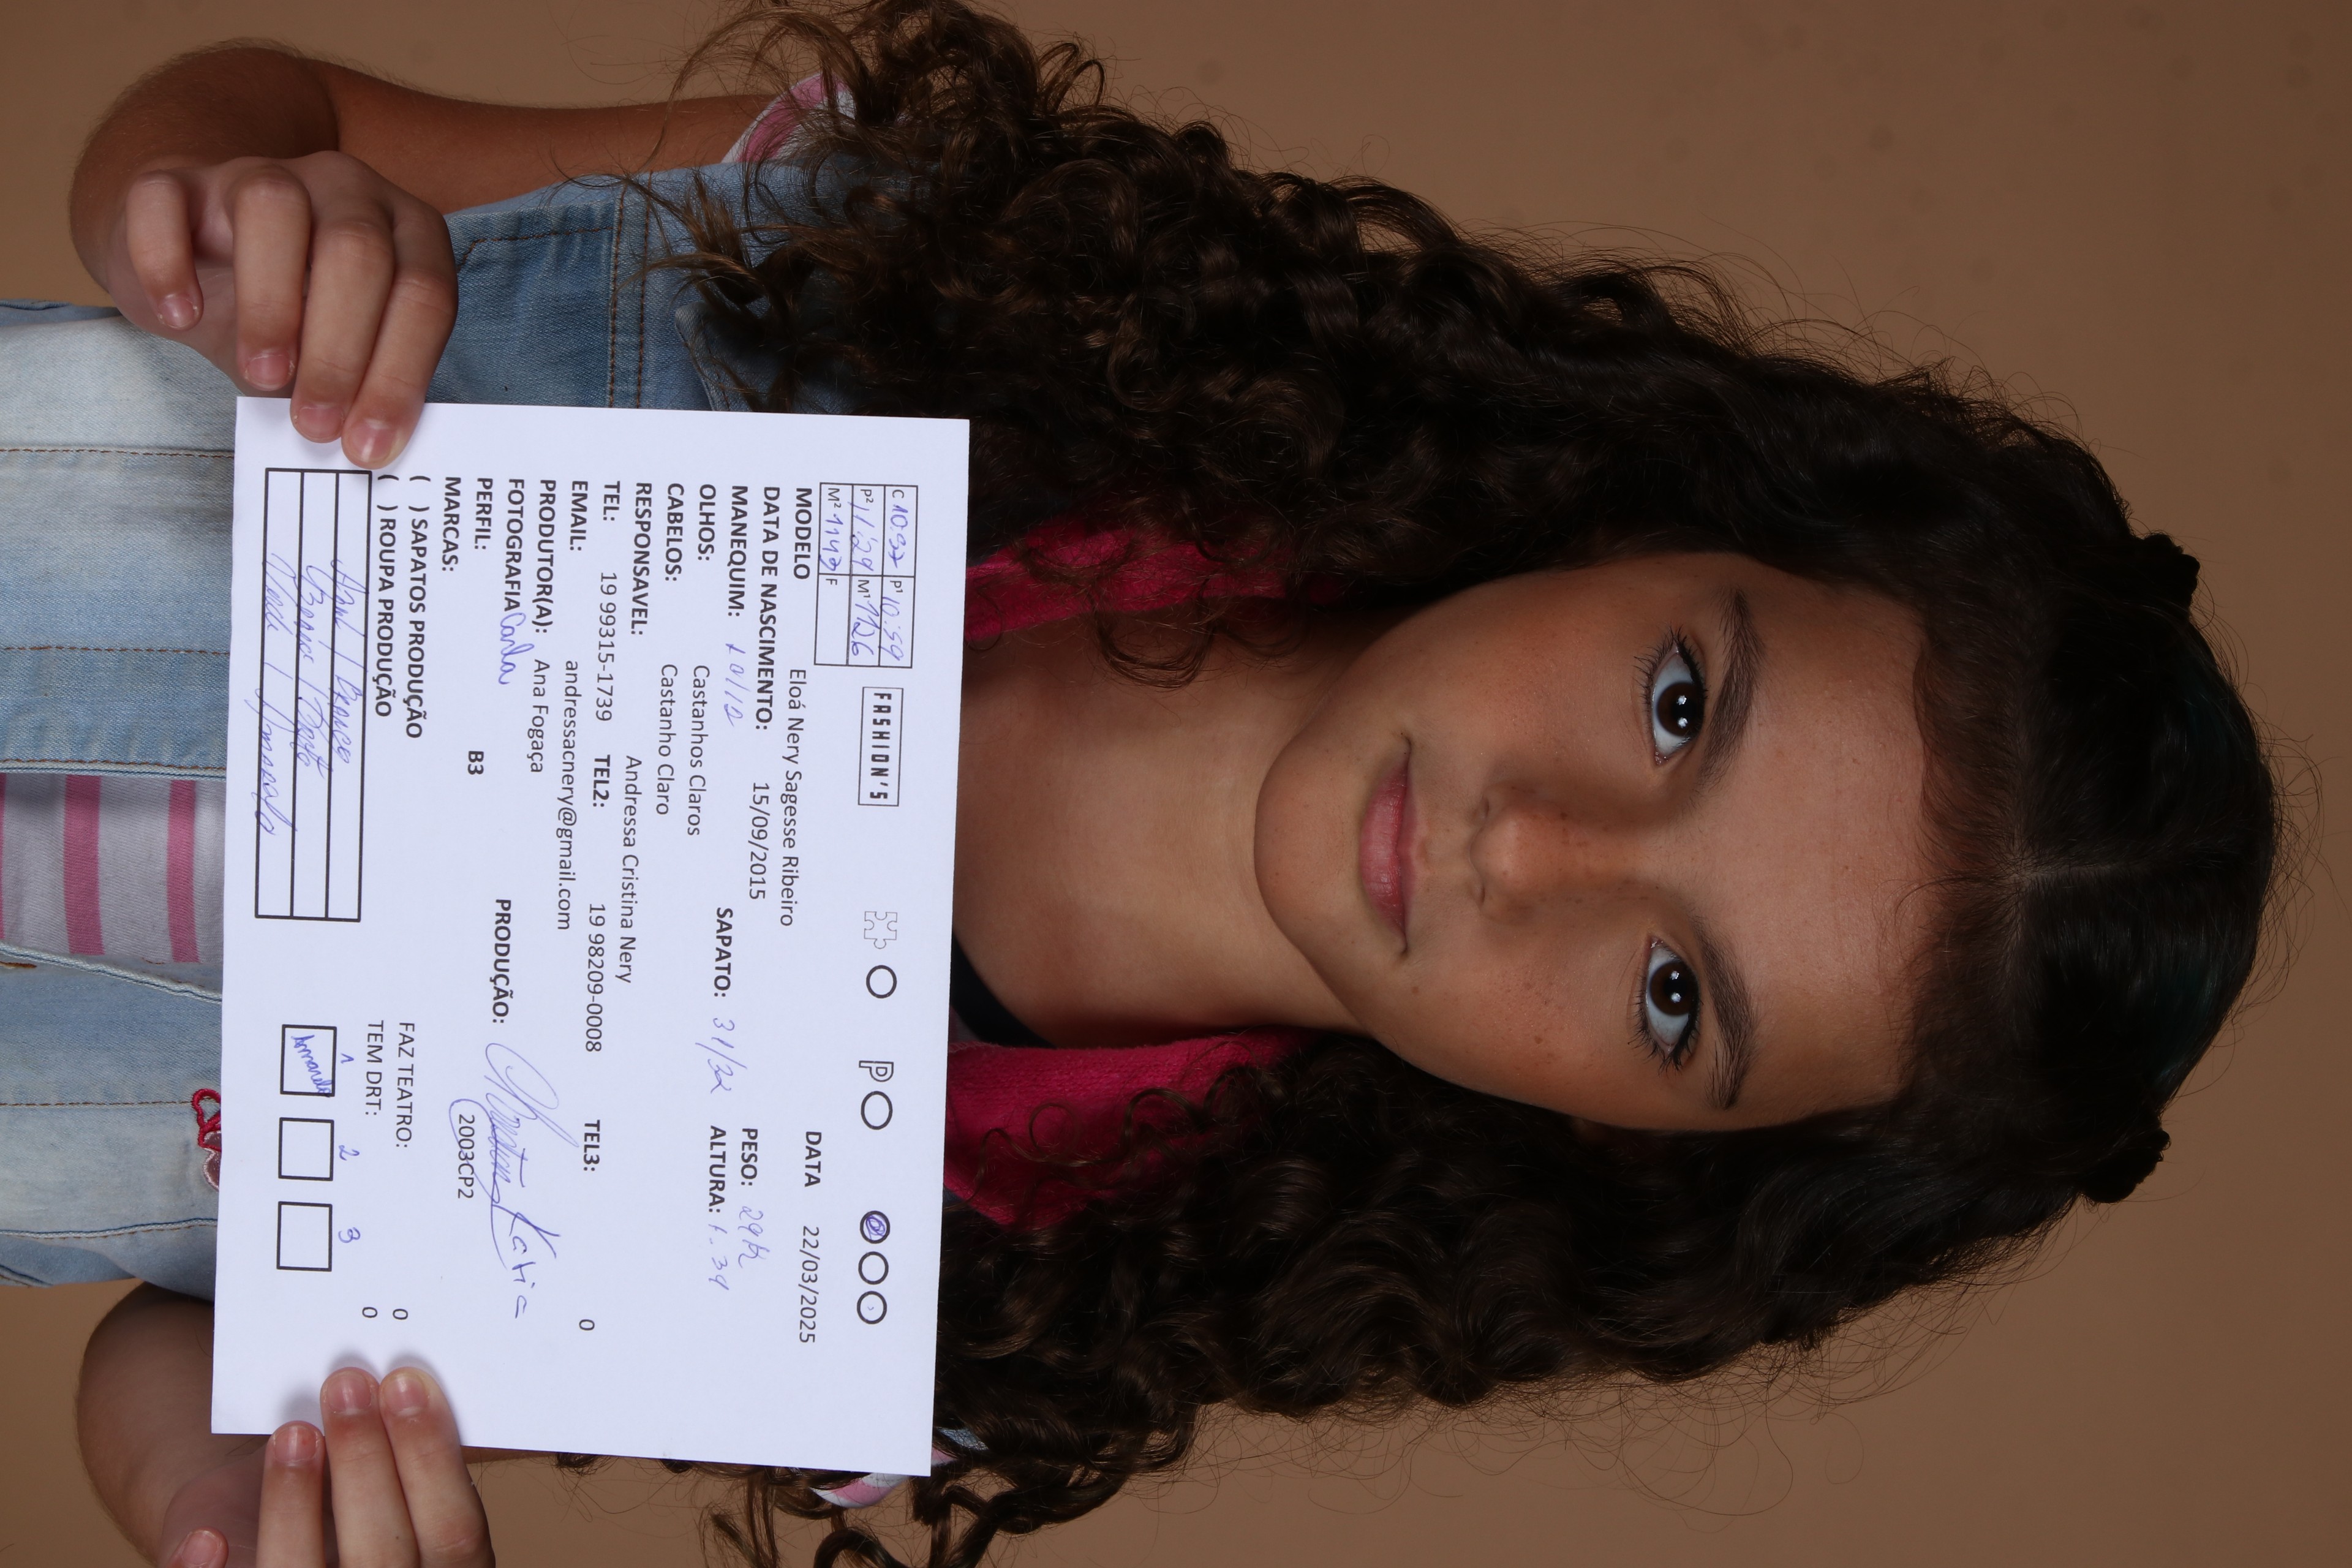 C 10:37 P¹ 10:59
P² 11:29 M¹ 1126
M² 1147 F
FASHION'S
P
MODELO Eloá Nery Sagesse Ribeiro DATA 22/03/2025
DATA DE NASCIMENTO: 15/09/2015 PESO: 29K
MANEQUIM: 10/12 SAPATO: 31/32 ALTURA: 1.39
OLHOS: Castanhos Claros
CABELOS: Castanho Claro
RESPONSAVEL: Andressa Cristina Nery
TEL: 19 99315-1739 TEL2: 19 98209-0008 TEL3: 0
EMAIL: andressacnery@gmail.com
PRODUTOR(A): Ana Fogaça
FOTOGRAFIA Carla PRODUÇÃO: Katia
PERFIL: B3 2003CP2
MARCAS:
( ) SAPATOS PRODUÇÃO FAZ TEATRO: 0
( ) ROUPA PRODUÇÃO TEM DRT: 0
Branco
Preto
1 2 3